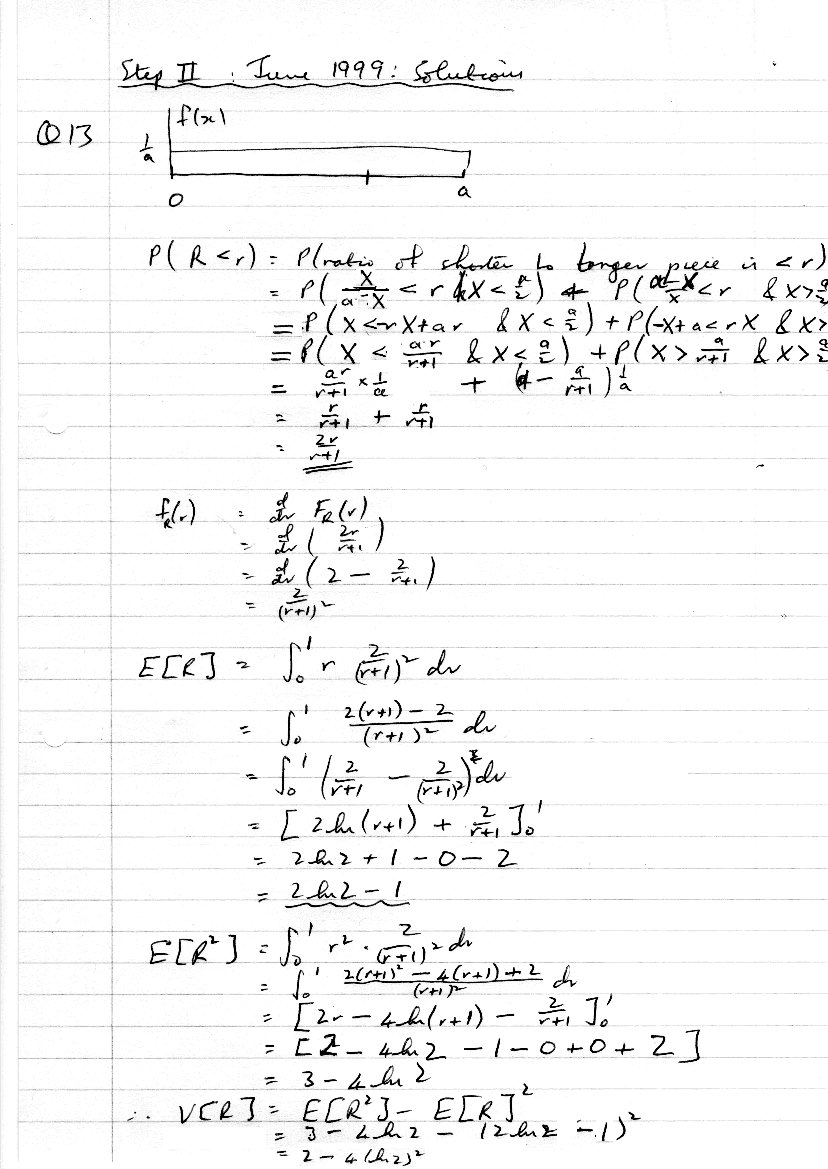 Step II : June 1999 : Solutions
Q13
f(x)
1/a
0 a
P(R<r) = P(ratio of shorter to longer piece is <r)
= P( X/(a-X) < r & X < a/2 ) + P( (a-X)/X < r & X > a/2
= P( X < -rX + ar & X < a/2 ) + P( -X + a < rX & X >
= P( X < ar/(r+1) & X < a/2 ) + P( X > a/(r+1) & X > a/2
= ar/(r+1) × 1/a + (a - a/(r+1)) 1/a
= r/(r+1) + r/(r+1)
= 2r/(r+1)
f_R(r) = d/dr F_R(r)
= d/dr ( 2r/(r+1) )
= d/dr ( 2 - 2/(r+1) )
= 2/(r+1)²
E[R] = ∫₀¹ r 2/(r+1)² dr
= ∫₀¹ (2(r+1) - 2)/(r+1)² dr
= ∫₀¹ ( 2/(r+1) - 2/(r+1)² ) dr
= [ 2ln(r+1) + 2/(r+1) ]₀¹
= 2ln2 + 1 - 0 - 2
= 2ln2 - 1
E[R²] = ∫₀¹ r² · 2/(r+1)² dr
= ∫₀¹ (2(r+1)² - 4(r+1) + 2)/(r+1)² dr
= [ 2r - 4ln(r+1) - 2/(r+1) ]₀¹
= [ 2 - 4ln2 - 1 - 0 + 0 + 2 ]
= 3 - 4ln2
∴ V[R] = E[R²] - E[R]²
= 3 - 4ln2 - (2ln2 - 1)²
= 2 - 4(ln2)²